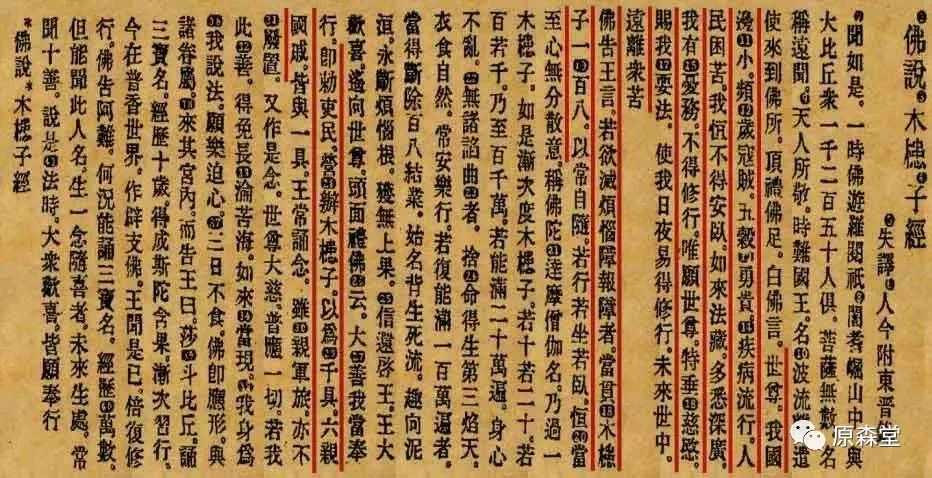 佛說木槵子經
失譯人今附東晉
聞如是。一時佛遊羅閱祇闍耆崛山中。與
大比丘衆一千二百五十人俱。菩薩無數。名
稱遠聞。天人所敬。時難國王。名波流離遣
使來到佛所。頂禮佛足。白佛言。世尊。我國
邊⓫小。頻⓬歲寇賊。五穀⓭勇貴。疾病流行。人
民困苦。我恆不得安臥。如來法藏。多悉深廣。
我有⓯憂務。不得修行。唯願世尊。特垂⓰慈愍。
賜我⓱要法。使我日夜易得修行。未來世中。
遠離衆苦
佛告王言。若欲滅煩惱障報障者。當貫⓲木槵
子一⓳百八。以常自隨。若行若坐若臥。恒⓴當
至心無分散意。稱佛陀達摩僧伽名。乃過一
木槵子。如是漸次度木槵子。若十若二十。若
百若千。乃至百千萬。若能滿二十萬遍。身心
不亂。無諸諂曲者。捨命得生第三焰天。
衣食自然。常安樂行。若復能滿一百萬遍者。
當得斷除百八結業。始名背生死流。趣向泥
洹。永斷煩惱根。獲無上果。信還啓王。王大
歡喜。遙向世尊。頭面禮佛云。大善我當奉
行。即勅吏民。營辦木槵子。以爲千具。六親
國戚。皆與一具。王常誦念。雖親軍旅。亦不
廢置。又作是念。世尊大慈。普應一切。若我
此善。得免長淪苦海。如來當現。我身爲
我說法。願樂迫心。三日不食。佛即應形。與
諸眷屬。來其宮內。而告王曰。莎斗比丘。誦
三寶名。經歷十歲。得成斯陀含果。漸次習行。
今在普香世界。作辟支佛。王聞是已。倍復修
行。佛告阿難。何況能誦三寶名。經歷萬數。
但能聞此人名。生一念隨喜者。未來生處。常
聞十善。說是法時。大衆歡喜。皆願奉行
佛說木槵子經
原森堂